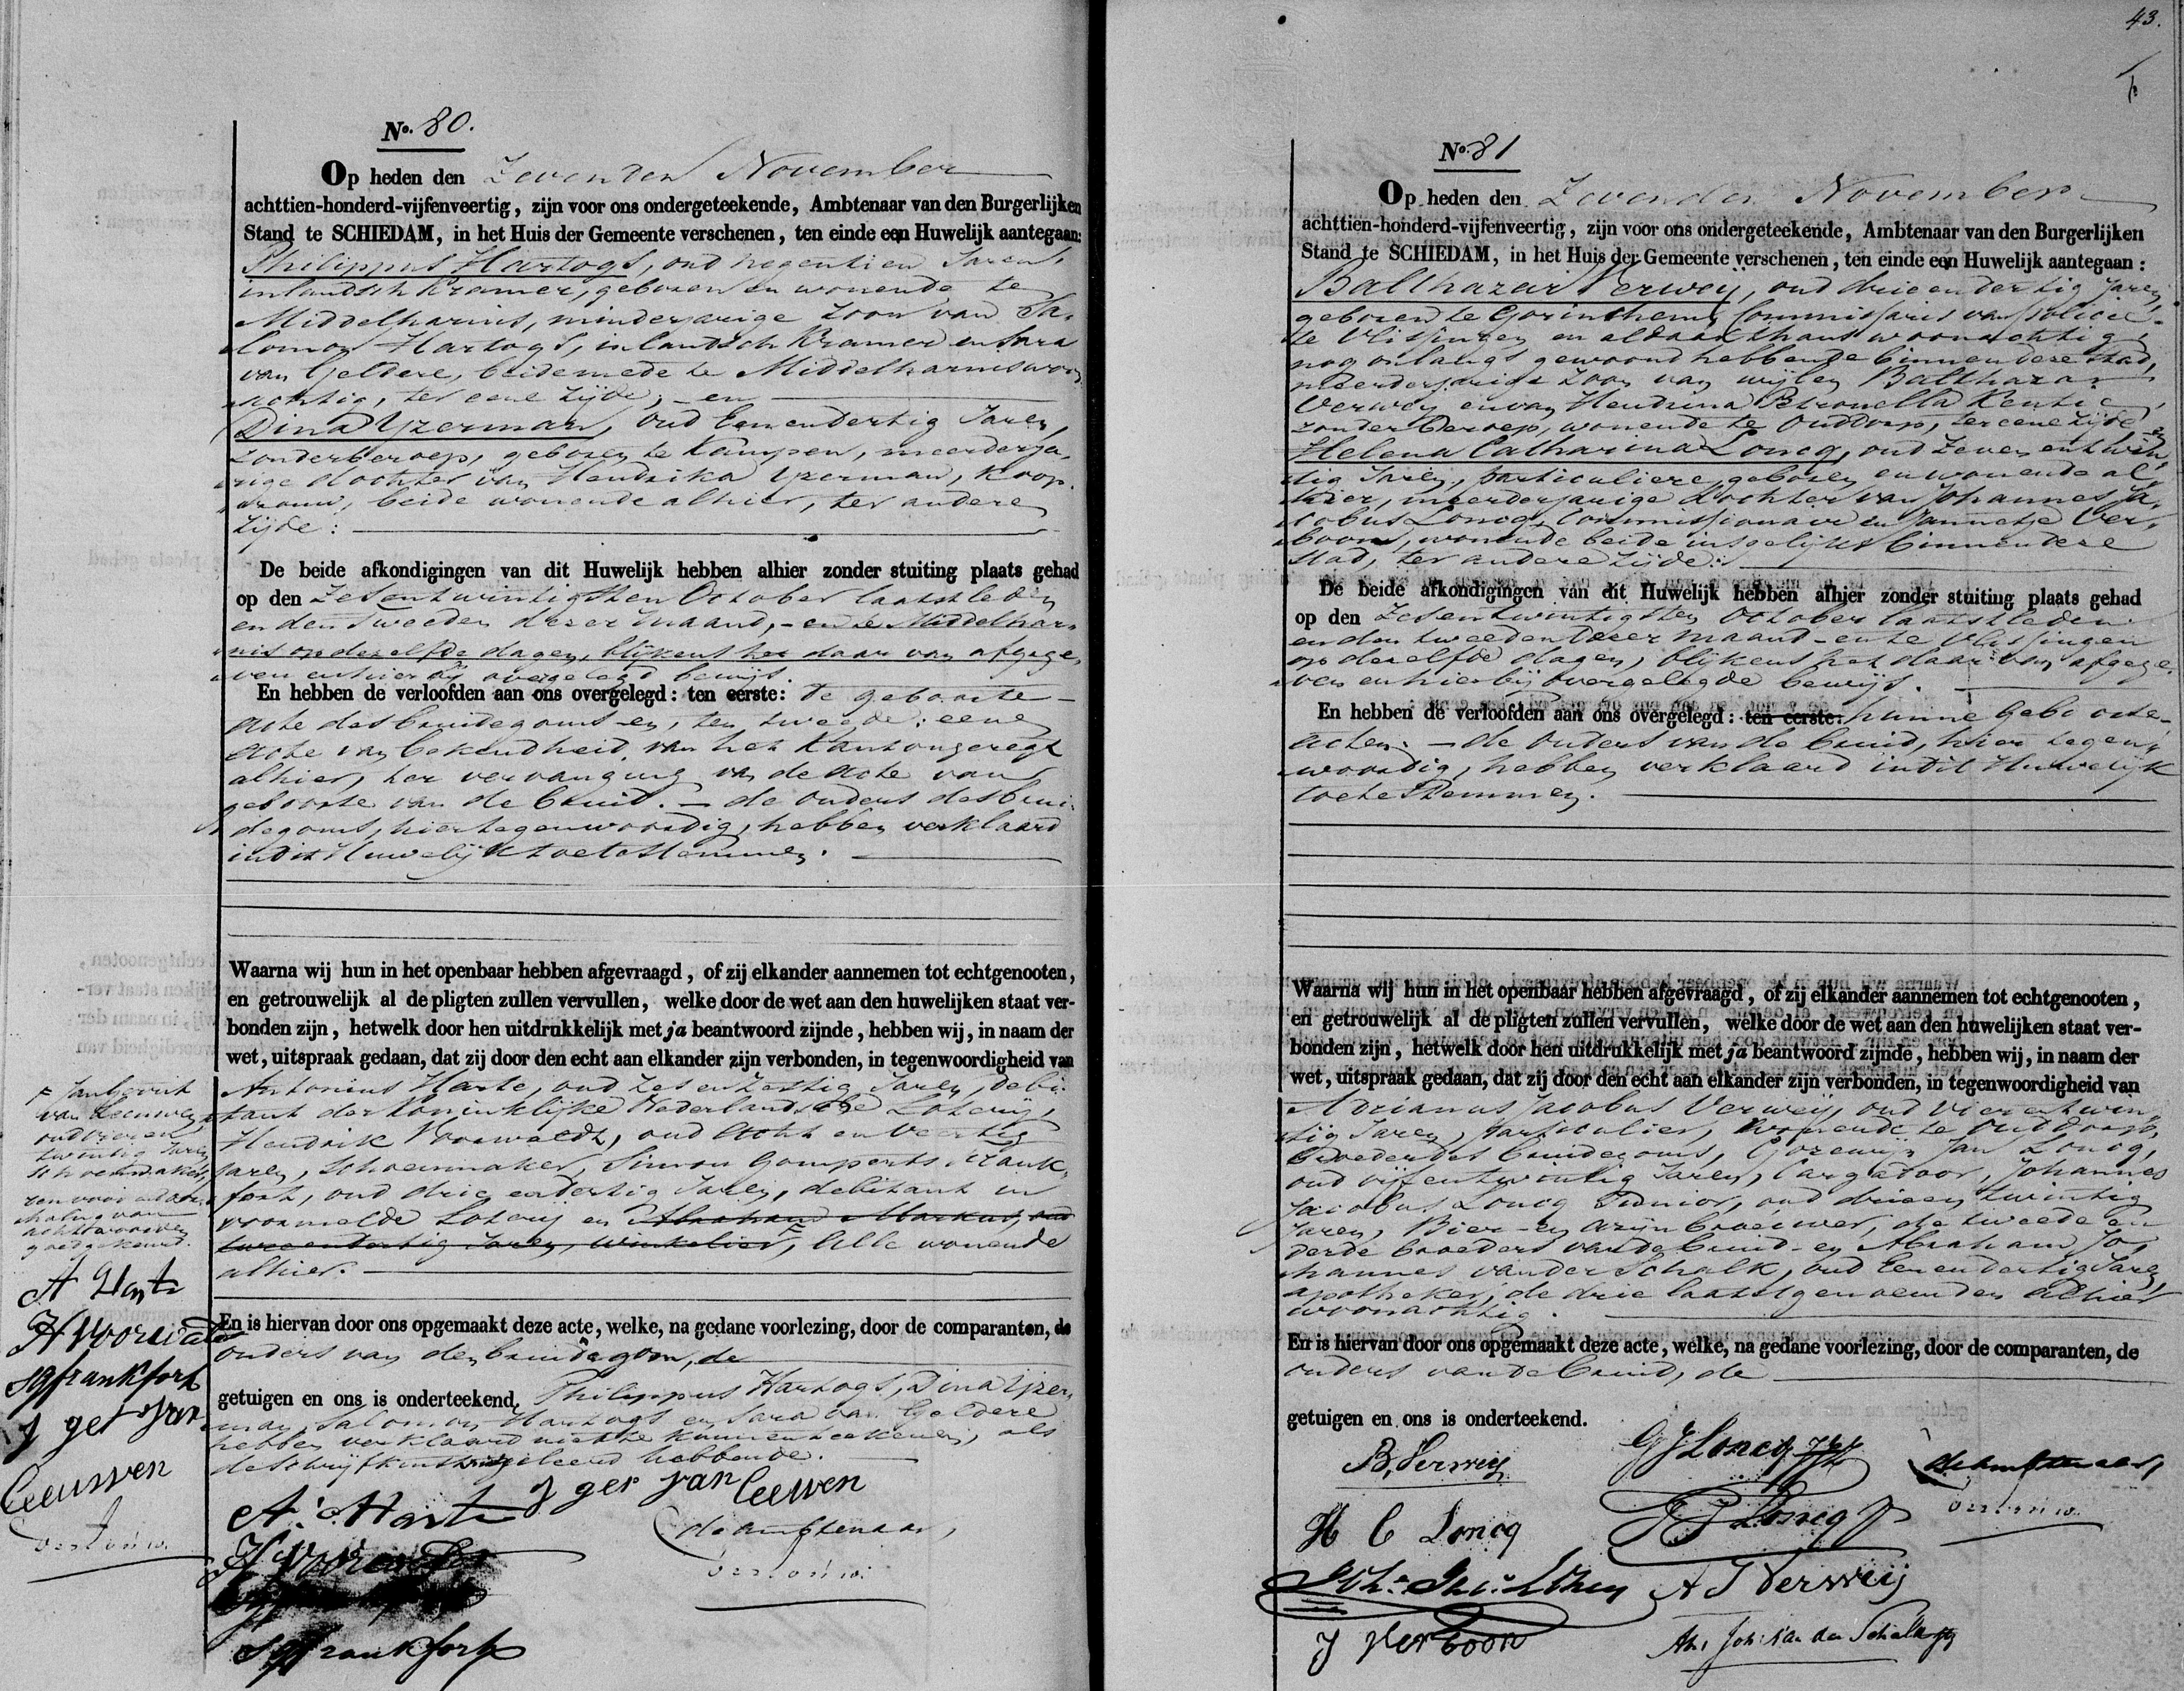 No. 80.
Op heden den Zevenden November
achttien-honderd-vijfenveertig, zijn voor ons ondergeteekende, Ambtenaar van den Burgerlijken
Stand te SCHIEDAM, in het Huis der Gemeente verschenen, ten einde een Huwelijk aantegaan:
Philippus Hartogs, oud negentien Jaren,
inlandsch Kramer, geboren en wonende te
Middelharnis, minderjarige Zoon van Sa-
lomon Hartogs, inlandsch Kramer en Sara
van Geldere, beide mede te Middelharnis woon
achtig, ter eene zijde, - en
Dina Yzerman, oud Eenendertig Jaren,
zonder beroep, geboren te Kampen, meerderja-
rige dochter van Hendrika Yzerman, Koop-
vrouw, beide wonende alhier, ter andere
zijde:
De beide afkondigingen van dit Huwelijk hebben alhier zonder stuiting plaats gehad
op den Zesentwintigsten October laatstleden
en den tweeden dezer maand, - en te Middelhar-
nis op dezelfde dagen, blijkens het daar van afgege-
ven en hier bij overgelegd bewijs.
En hebben de verloofden aan ons overgelegd: ten eerste: de geboorte-
acte des bruidegoms en, ten tweede: eene
acte van bekendheid van het Kantongeregt
alhier, ter vervanging van de acte van
geboorte van de bruid. - de ouders des brui-
degoms, hier tegenwoordig, hebben verklaard
in dit Huwelijk toetestemmen.
Waarna wij hun in het openbaar hebben afgevraagd, of zij elkander aannemen tot echtgenooten,
en getrouwelijk al de pligten zullen vervullen, welke door de wet aan den huwelijken staat ver-
bonden zijn, hetwelk door hen uitdrukkelijk met ja beantwoord zijnde, hebben wij, in naam der
wet, uitspraak gedaan, dat zij door den echt aan elkander zijn verbonden, in tegenwoordigheid van
Antonius Harte, oud zesenzestig Jaren, debi-
tant der Koninklijke Nederlandsche Loterij,
Hendrik Voorwaldt, oud acht en veertig
Jaren, Schoenmaker, Simon Gomperts Frank-
fort, oud drie endertig Jaren, debitant in
voormelde Loterij en Abraham Markus, oud
tweeendertig Jaren, Winkelier, Alle wonende
alhier.
van Leeuwen
oud vieren
twintig Jaren
Schoenmaker,
goedgekeurd.
A Harte
H Voorwaldt
SG frankfort
J ger van
Leeuwen
En is hiervan door ons opgemaakt deze acte, welke, na gedane voorlezing, door de comparanten, de
ouders van den bruidegom, de
getuigen en ons is onderteekend. Philippus Hartogs, Dina Yzer-
man, Salomon Hartogs en Sara van Geldere
hebben verklaard niet te kunnen teekenen, als
de schrijfkunst niet geleerd hebbende.
A. Harte J ger van Leeuwen
de ambtenaar,
H Voorwaldt
SG frankfort
43.
No. 81
Op heden den Zevenden November
achttien-honderd-vijfenveertig, zijn voor ons ondergeteekende, Ambtenaar van den Burgerlijken
Stand te SCHIEDAM, in het Huis der Gemeente verschenen, ten einde een Huwelijk aantegaan:
Balthazar Verweij, oud drie en dertig Jaren,
geboren te Gorinchem, Commissaris van Policie
te Vlissingen en aldaar thans woonachtig
nog onlangs gewoond hebbende binnen deze stad,
meerderjarige Zoon van wijlen Balthazar
Verweij en van Hendrina Petronella Kentie,
zonder beroep, wonende te Ouddorp, ter eene zijde en
Helena Catharina Loncq, oud zeven entwin-
tig Jaren, particuliere, geboren en wonende al-
hier, meerderjarige dochter van Johannes Ja-
cobus Loncq, Commissionair en Jannetje Ver-
boon, wonende beide insgelijks binnen deze
stad, ter andere zijde.
De beide afkondigingen van dit Huwelijk hebben alhier zonder stuiting plaats gehad
op den Zesentwintigsten October laatstleden
en den tweeden dezer maand - en te Vlissingen
op dezelfde dagen, blijkens het daar van afgege-
ven en hierbij overgelegde bewijs.
En hebben de verloofden aan ons overgelegd: ten eerste: hunne geboorte-
acten. - de ouders van de bruid, hier tegen-
woordig, hebben verklaard in dit Huwelijk
toetestemmen.
Waarna wij hun in het openbaar hebben afgevraagd, of zij elkander aannemen tot echtgenooten,
en getrouwelijk al de pligten zullen vervullen, welke door de wet aan den huwelijken staat ver-
bonden zijn, hetwelk door hen uitdrukkelijk met ja beantwoord zijnde, hebben wij, in naam der
wet, uitspraak gedaan, dat zij door den echt aan elkander zijn verbonden, in tegenwoordigheid van
Adrianus Jacobus Verweij, oud vierentwin-
tig Jaren, particulier, wonende te Ouddorp,
broeder des bruidegoms, Gozewijn Jan Loncq,
oud vijfentwintig Jaren, Cargadoor, Johannes
Jacobus Loncq Junior, oud drieen twintig
Jaren, Bier- en azijnbrouwer, de tweede en
derde broeders van de bruid - en Abraham Jo-
hannes van der Schalk, oud Eenendertig Jaren,
apotheker, de drie laatstgenoemden alhier
woonachtig.
En is hiervan door ons opgemaakt deze acte, welke, na gedane voorlezing, door de comparanten, de
ouders van de bruid, de
getuigen en ons is onderteekend.
B. Verweij
GJ Loncq
de ambtenaar,
H C Loncq
JJ Loncq Jr
A J Verweij
J Verboon
Abr. Joh. van der Schalk